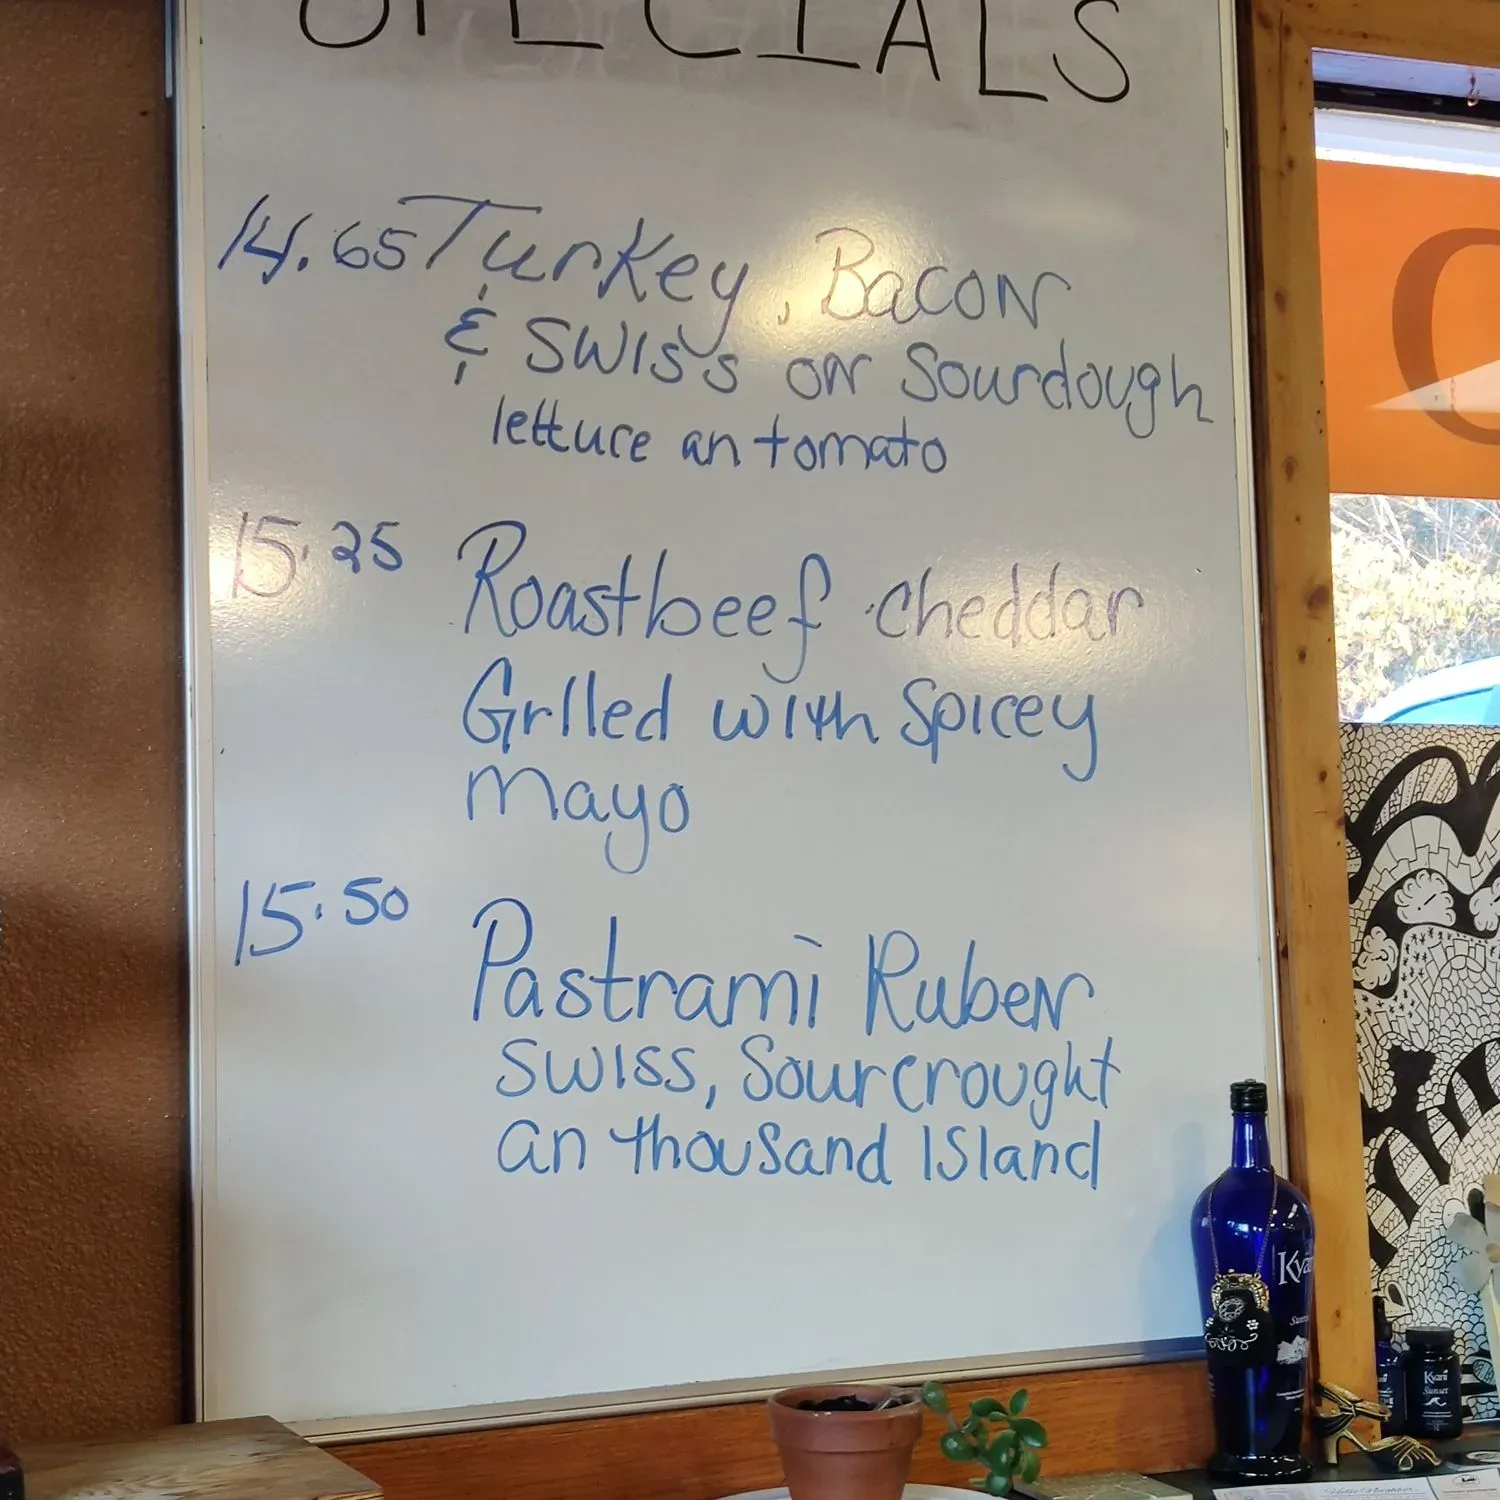 SPECIALS
14.65 Turkey, Bacon
& Swiss on Sourdough
lettuce an tomato
15.25 Roastbeef cheddar
Grlled with Spicey
mayo
15.50 Pastrami Ruben
Swiss, Sourcrought
an thousand Island
Kyäni
Sunset